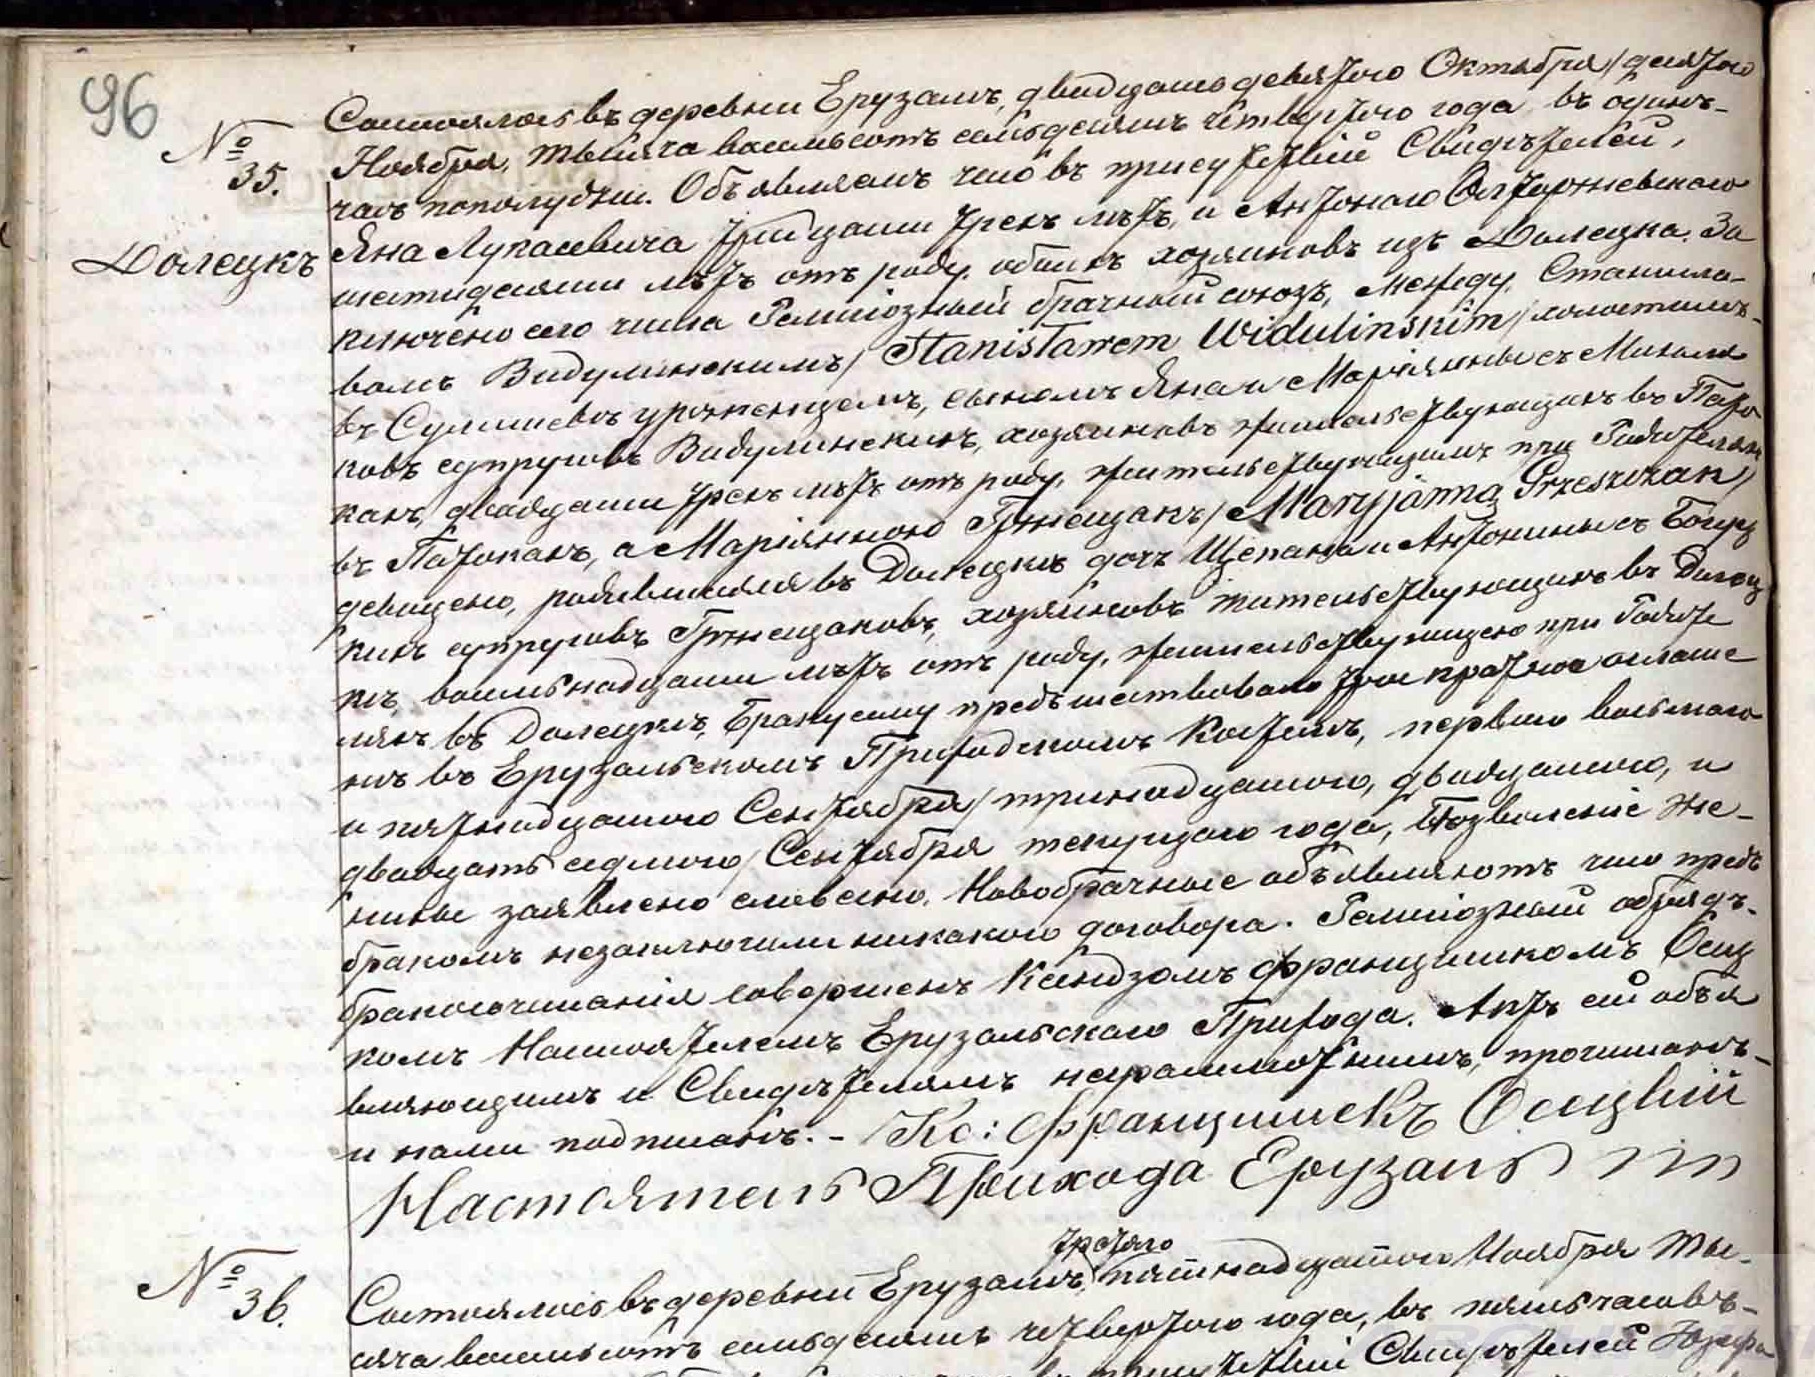 96
№ 35.
Долецкъ
Состоялось въ деревни Ерузаль, двадцать девятого Октября / десятого
Ноября, тысяча восемьсотъ семьдесятъ четвертого года, въ одинъ-
часъ пополудни. Объявляемъ что въ присутствіи Свидѣтелей,
Яна Лукасевича тридцати трехъ лѣтъ, и Антонаго
шестидесяти лѣтъ отъ роду, обоихъ хозяиновъ изъ Долецка. За
ключено сего числа Религіозный брачный союзъ, между, Станисла-
вомъ Видулинскимъ / Stanisławem Widulinskim / холостымъ-
въ Сулишевъ урожонцемъ, сыномъ Яна и Маріянны съ Михала
ковъ супруговъ Видулинскихъ, хозяиновъ жительствующихъ въ Пато
кахъ, двадцати трехъ лѣтъ отъ роду, жительствующимъ при Родителяхъ
въ Патокахъ, а Маріянною Гржещакъ / Maryjanną Grzeszczak /
девицею, родившеюся въ Долецкъ дочъ Щепана и Антонины съ Богуц
кихъ супруговъ Гржещаковъ, хозяиновъ жительствующихъ въ Долец
къ, восемьнадцати лѣтъ отъ роду, жительствующею при Родите
ляхъ въ Долецкъ, Браку сему предъшествовало три кратное оглаше
нъ въ Ерузальскомъ Приходскомъ Костелъ, первого восьмаго
и пятнадцатого Сентября / тринадцатого, двадцатого, и
двадцать седмого / Сентября текущаго года, Позволеніе Же-
нихы заявлено словесно. Новобрачные объявляютъ что предъ
бракомъ незаключили никакого договора. Религіозный обрядъ-
бракосочитанія совершенъ Ксендзомъ Францишкомъ Осец
комъ Настоятелемъ Ерузальскаго Прихода. Актъ сей объя
вляющимъ и Свидѣтелямъ неграмотнымъ, прочитанъ-
и нами подписанъ. - / Кс: Францишекъ Осецкій
Настоятель Прихода Ерузаль
№ 36.
третяго
Состоялось въ деревни Ерузаль, пятнадцатого Ноября ты-
сяча восемьсотъ семьдесятъ четвертого года, въ пять часовъ-
присутствіи Свидѣтелей Юзефа